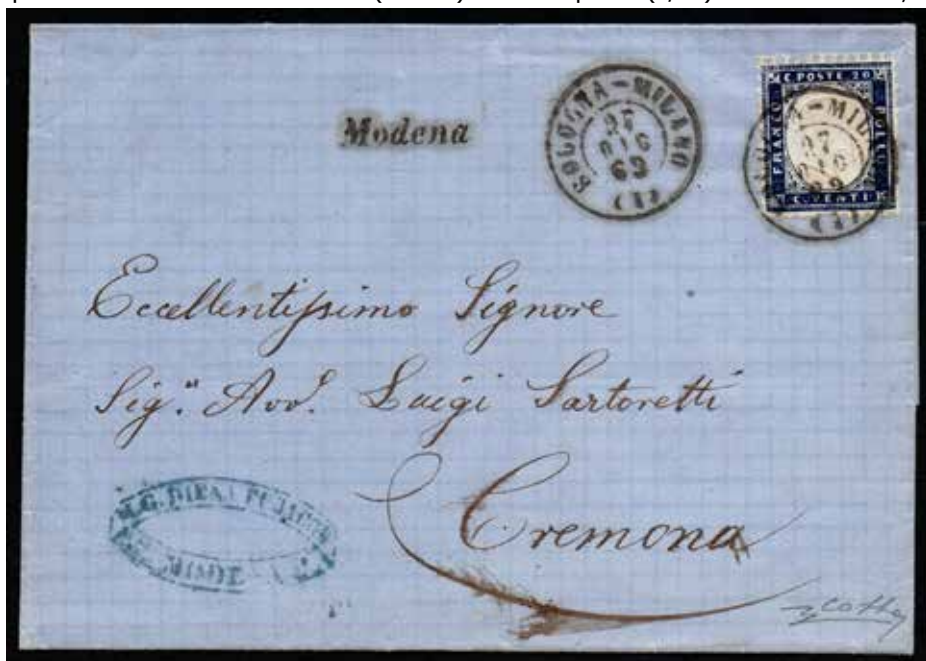 Modena
BOLOGNA-MILANO
27
GIUG
62
(1)
C POSTE 20
FRANCO
BOLLO
C VENTI
MIL
27
(1)
Eccellentissimo Signore
Sig.r Avv. Luigi Sartoretti
Cremona
M.G. DIENA
MODENA